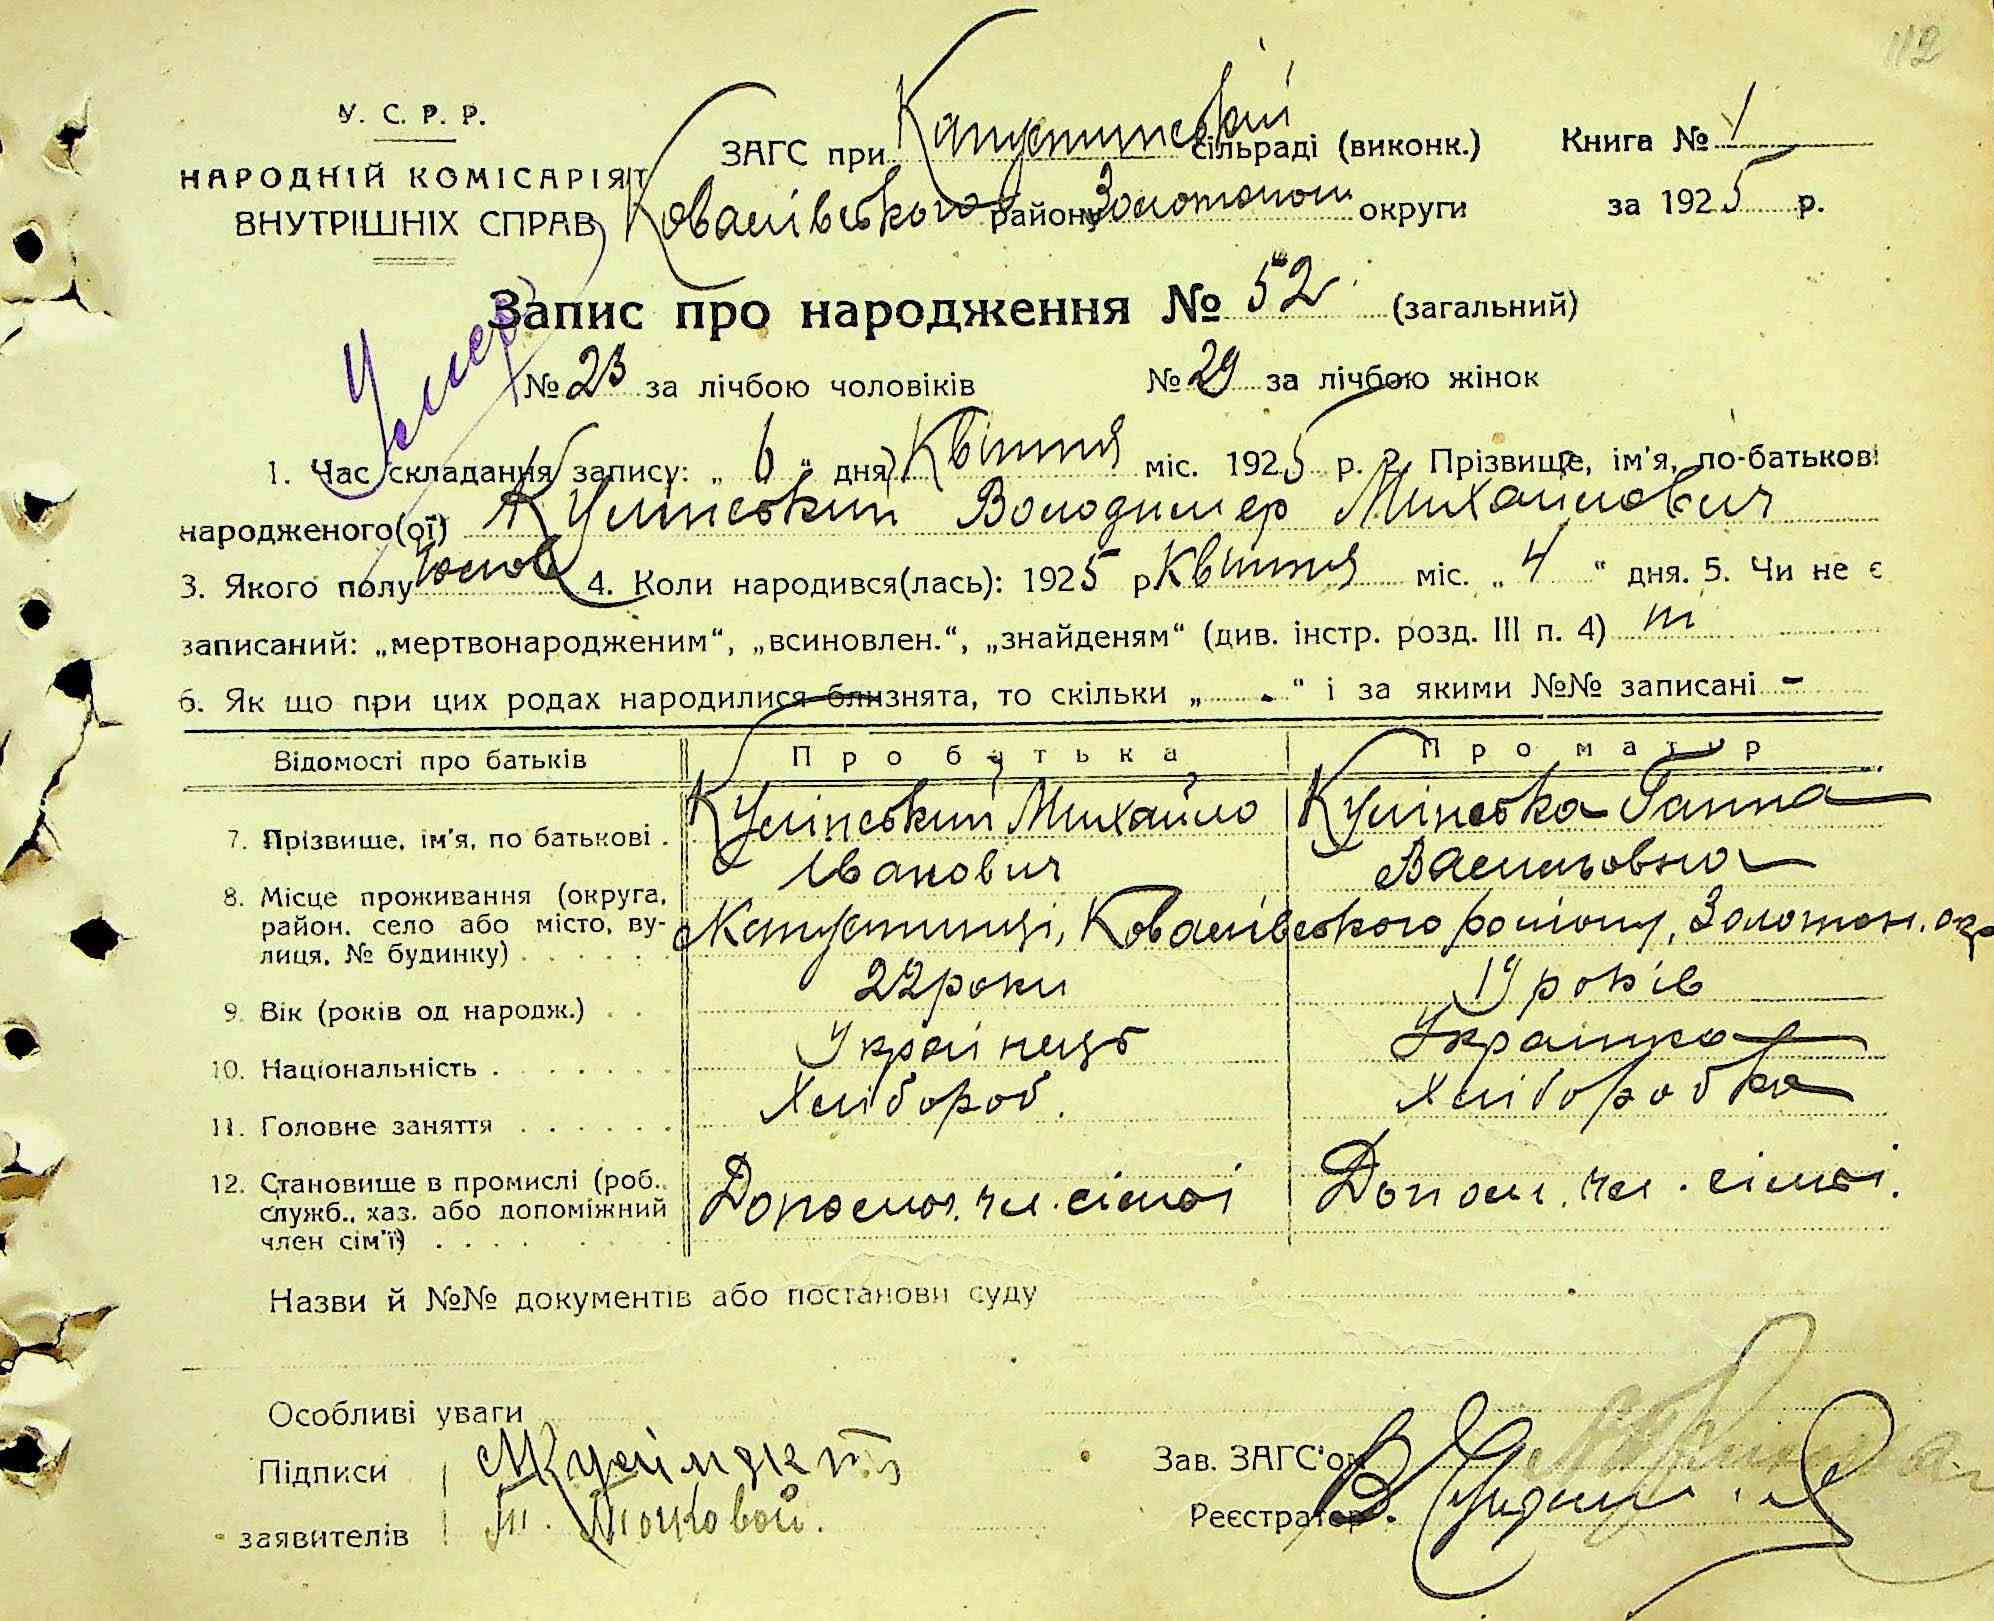 112
У. С. Р. Р.
НАРОДНІЙ КОМІСАРІЯТ
ВНУТРІШНІХ СПРАВ
ЗАГС при Капустинській сільраді (виконк.)
Ковалівського району Золотонош округи
Книга № 1
за 1925 р.
Умер
Запис про народження № 52 (загальний)
№ 23 за лічбою чоловіків № 29 за лічбою жінок
1. Час складання запису: „ 6 “ дня Квітня міс. 1925 р. 2. Прізвище, ім'я, по-батькові
народженого(ої) Кулінський Володимер Михайлович
3. Якого полу чолов 4. Коли народився(лась): 1925 р Квітня міс. „ 4 “ дня. 5. Чи не є
записаний: „мертвонародженим“, „всиновлен.“, „знайденям“ (див. інстр. розд. III п. 4)
6. Як що при цих родах народилися близнята, то скільки „ - “ і за якими №№ записані -
Відомості про батьків Про батька Про матір
7. Прізвище, ім'я, по батькові . Кулінський Михайло Іванович Кулінська Ганна Васильовна
8. Місце проживання (округа, район, село або місто, вулиця, № будинку) . . . . . . Капустинці, Ковалівського району, Золотон. окр
9. Вік (років од народж.) . . 22 роки 19 років
10. Національність . . . . . . . Українець Українка
11. Головне заняття . . . . . . Хлібороб. Хліборобка
12. Становище в промислі (роб., служб., хаз. або допоміжний член сім'ї) . . . . . . . Допомог. чл. сімьї Допом. чл. сімьї.
Назви й №№ документів або постанови суду
Особливі уваги
Підписи
заявителів
Зав. ЗАГС'ом
Реєстратор